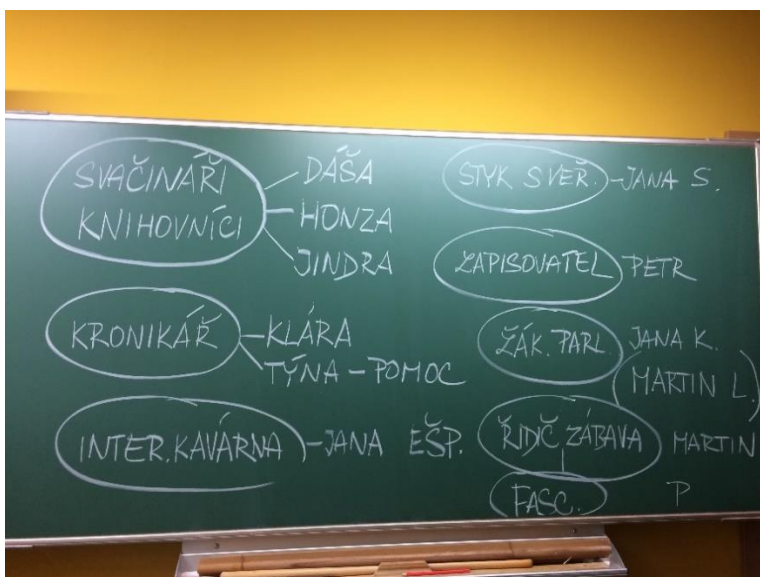 SVAČINÁŘI
KNIHOVNÍCI
DÁŠA
HONZA
JINDRA
KRONIKÁŘ
KLÁRA
TÝNA - POMOC
INTER. KAVÁRNA - JANA EŠP.
STYK S VEŘ. - JANA S.
ZAPISOVATEL PETR
ŽÁK. PARL. JANA K.
(MARTIN L.)
ŘIDIČ ZÁBAVA MARTIN
FASC. P